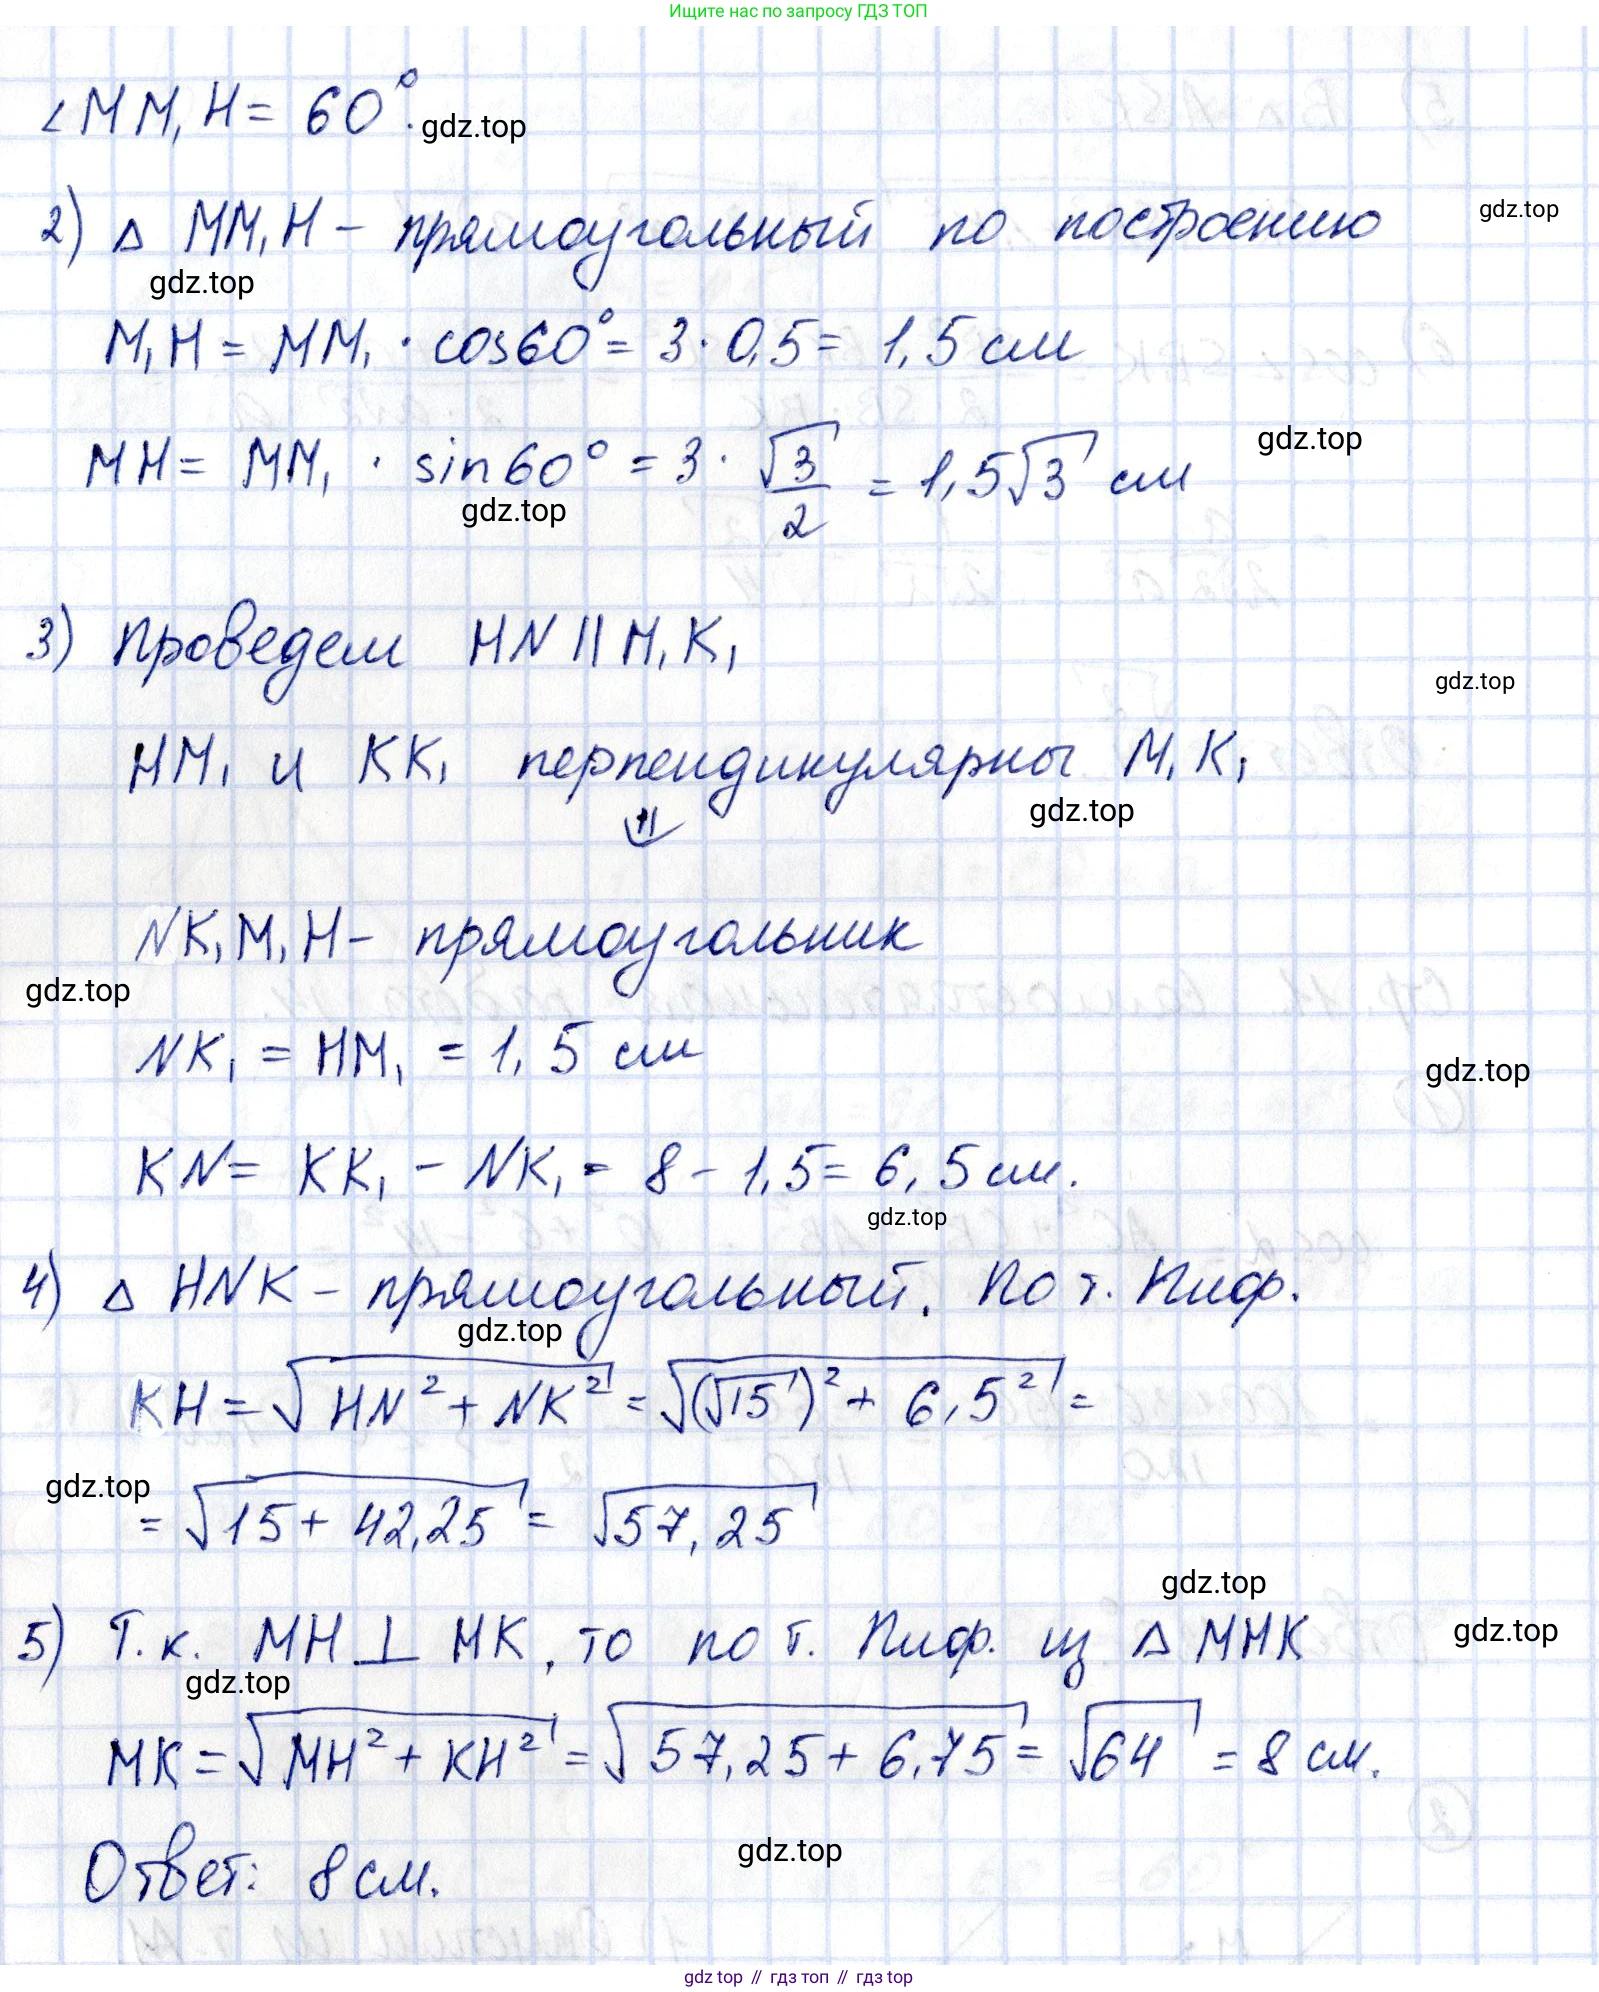 Ищите нас по запросу ГДЗ ТОП
∠MM₁H = 60°.
gdz.top
2) △ MM₁H – прямоугольный по построению
gdz.top
gdz.top
M₁H = MM₁ · cos60° = 3 · 0,5 = 1,5 см
gdz.top
MH = MM₁ · sin60° = 3 · √3/2 = 1,5√3 см
gdz.top
3) Проведем HN || M₁K₁
gdz.top
HM₁ и KK₁ перпендикулярны M₁K₁
gdz.top
⇓
NK₁M₁H – прямоугольник
gdz.top
NK₁ = HM₁ = 1,5 см
gdz.top
KN = KK₁ – NK₁ = 8 – 1,5 = 6,5 см.
gdz.top
4) △ HNK – прямоугольный. По т. Пиф.
gdz.top
KH = √(HN² + NK²) = √((√15)² + 6,5²) =
gdz.top
= √(15 + 42,25) = √57,25
gdz.top
5) Т.к. MH ⊥ HK, то по т. Пиф. из △ MHK
gdz.top
gdz.top
MK = √(MH² + KH²) = √(57,25 + 6,75) = √64 = 8 см.
gdz.top
Ответ: 8 см.
gdz top // гдз топ // гдз top